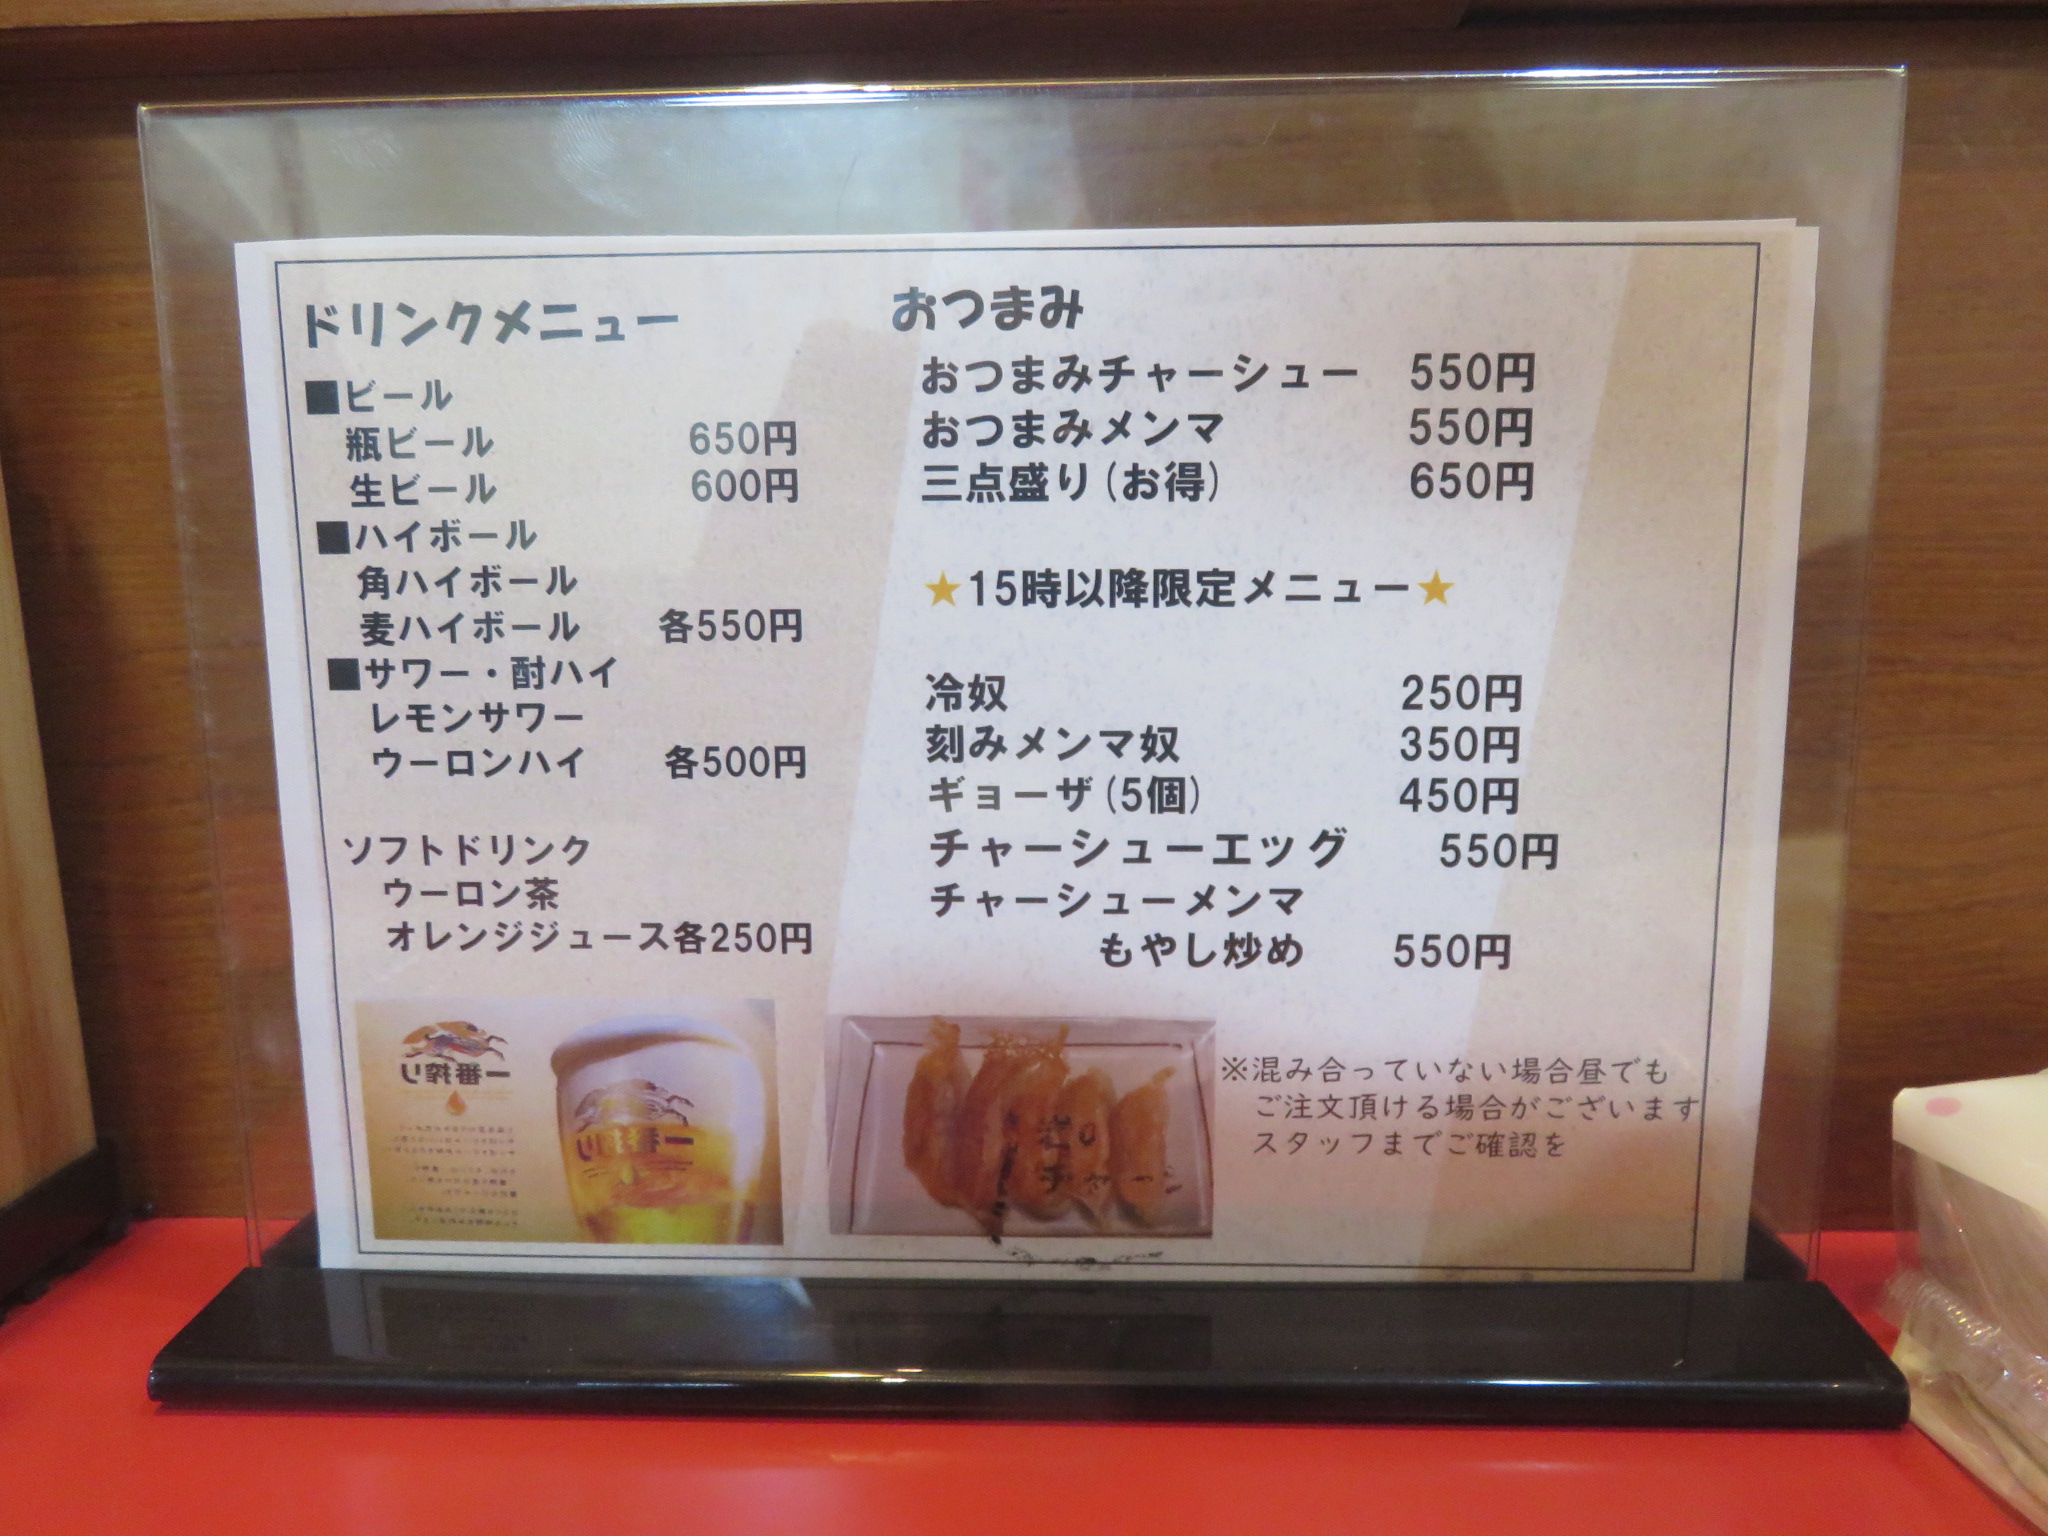 ドリンクメニュー
■ビール
瓶ビール 650円
生ビール 600円
■ハイボール
角ハイボール
麦ハイボール 各550円
■サワー・酎ハイ
レモンサワー
ウーロンハイ 各500円
ソフトドリンク
ウーロン茶
オレンジジュース各250円
おつまみ
おつまみチャーシュー 550円
おつまみメンマ 550円
三点盛り(お得) 650円
★15時以降限定メニュー★
冷奴 250円
刻みメンマ奴 350円
ギョーザ(5個) 450円
チャーシューエッグ 550円
チャーシューメンマ
もやし炒め 550円
※混み合っていない場合昼でも
ご注文頂ける場合がございます
スタッフまでご確認を
一番搾り
一番搾り